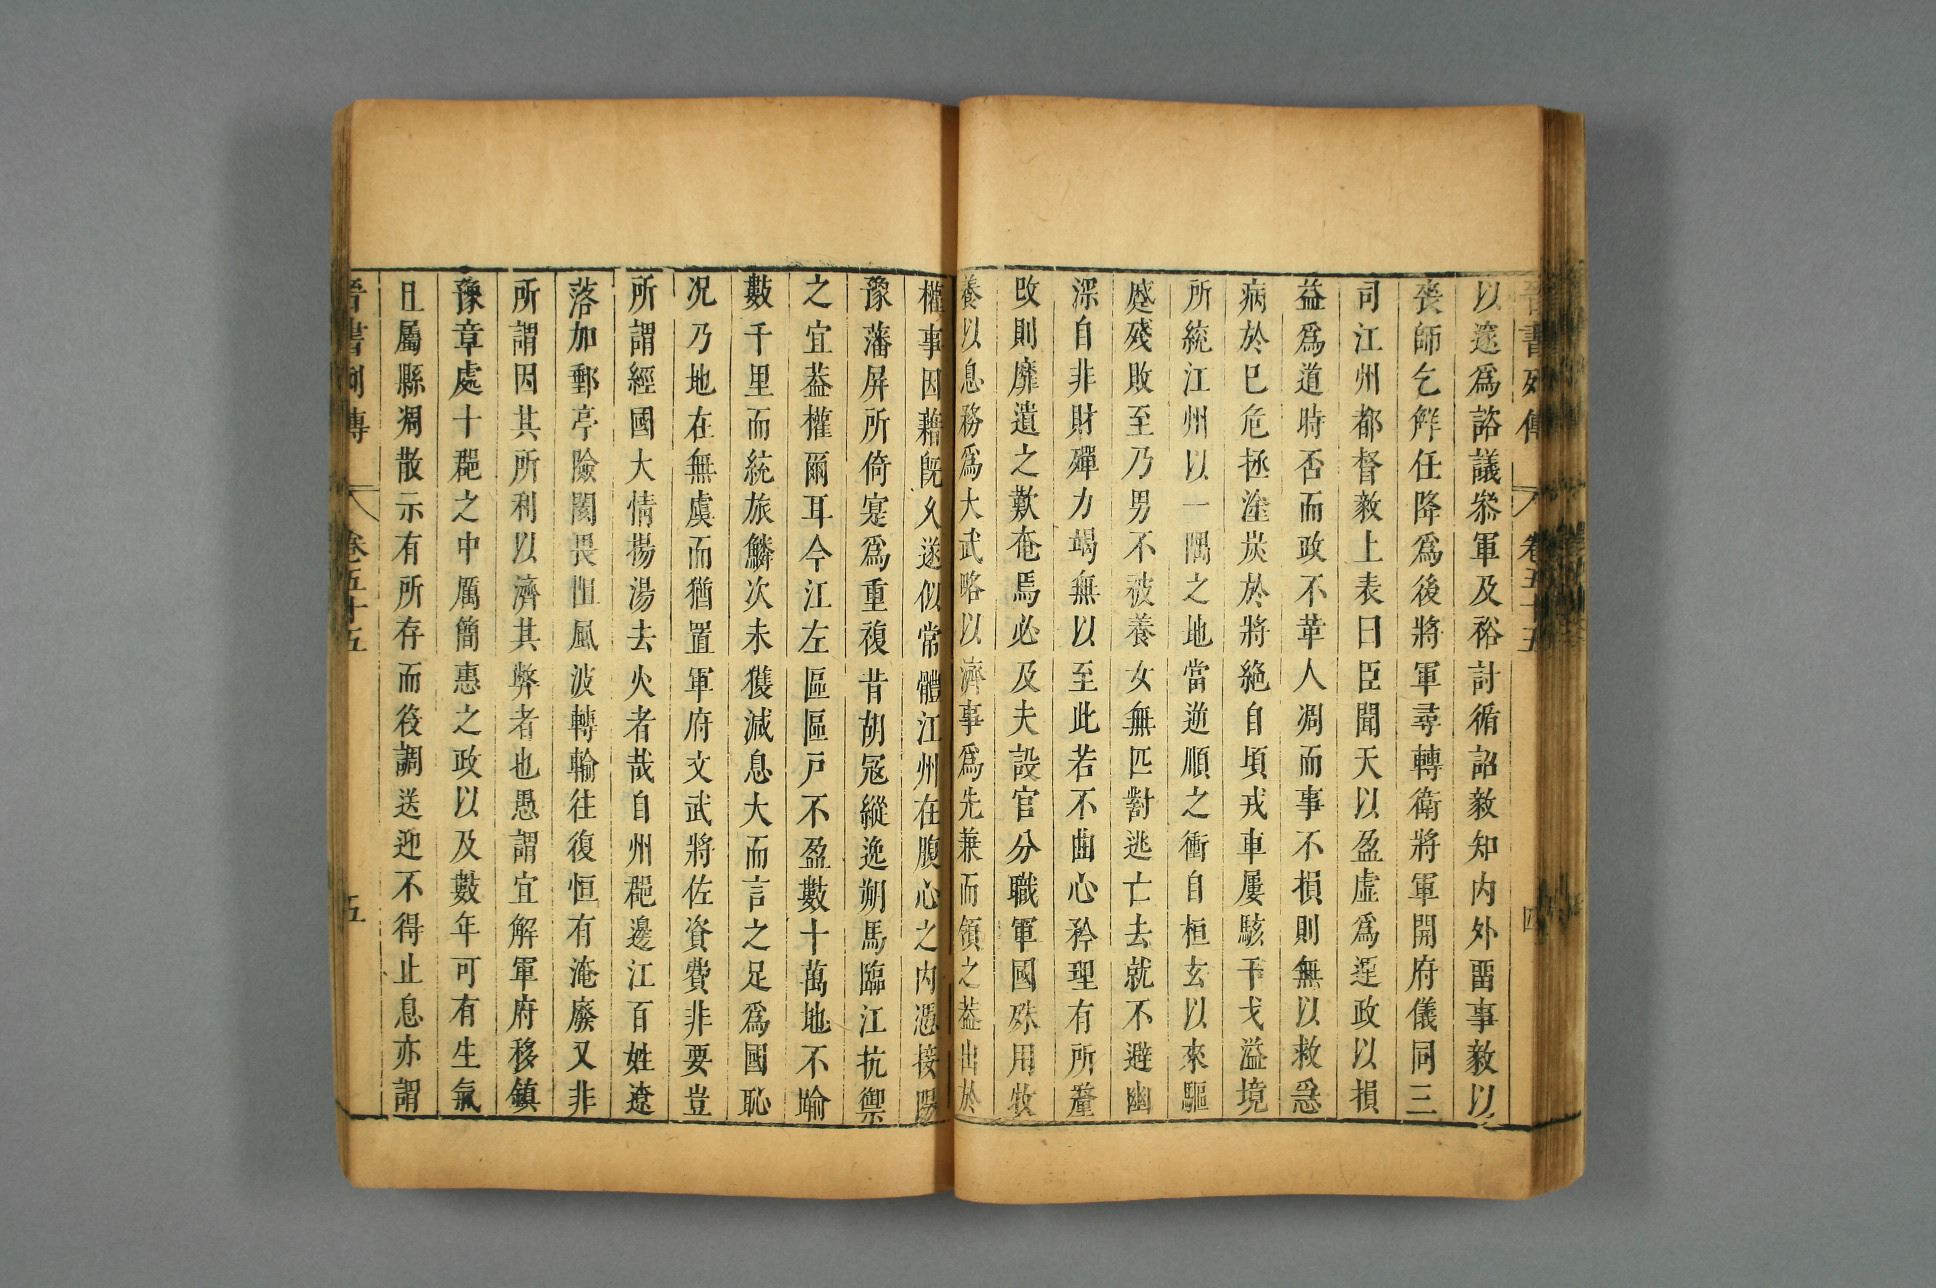 晉書列傳 卷五十五 四
以邃爲諮議參軍及裕討循詔毅知內外畱事毅以
喪師乞觧任降爲後將軍尋轉衛將軍開府儀同三
司江州都督毅上表曰臣聞天以盈虛爲運政以損
益爲道時否而政不革人凋而事不損則無以救急
病於已危拯塗炭於將絶自頃戎車屢駭干戈溢境
所統江州以一隅之地當逆順之衝自桓玄以來驅
蹙殘敗至乃男不被養女無匹對逃亡去就不避幽
深自非財殫力竭無以至此若不曲心矜理有所釐
改則靡遺之歎奄焉必及夫設官分職軍國殊用牧
養以息務爲大武略以濟事爲先兼而領之葢出於
權事因藉旣久遂似常體江州在腹心之內憑接揚
豫藩屏所倚寔爲重複昔胡冦縱逸朔馬臨江抗禦
之宜葢權爾耳今江左區區戶不盈數十萬地不踰
數千里而統旅鱗次未獲減息大而言之足爲國恥
况乃地在無虞而猶置軍府文武將佐資費非要豈
所謂經國大情揚湯去火者哉自州郡邊江百姓遼
落加郵亭險閡畏阻風波轉輸往復恒有淹廢又非
所謂因其所利以濟其弊者也愚謂宜解軍府移鎮
豫章處十郡之中厲簡惠之政以及數年可有生氣
且屬縣凋散示有所存而役調送迎不得止息亦謂
晉書列傳 卷五十五 五